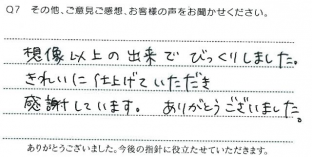 Q7 その他、ご意見ご感想、お客様の声をお聞かせください。
想像以上の出来で びっくりしました。
きれいに仕上げていただき
感謝しています。 ありがとうございました。
ありがとうございました。今後の指針に役立たせていただきます。